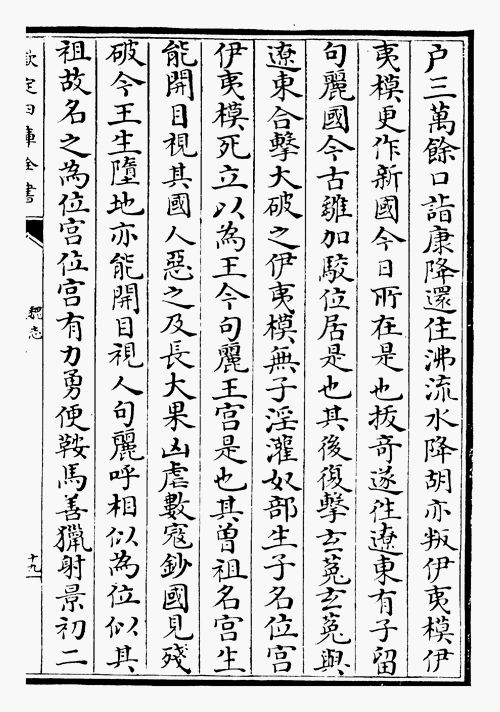 户三萬餘口詣康降還住沸流水降胡亦叛伊夷模伊
夷模更作新國今日所在是也拔奇遂往遼東有子留
句麗國今古雛加駮位居是也其後復擊玄菟玄菟與
遼東合擊大破之伊夷模無子淫灌奴部生子名位宮
伊夷模死立以為王今句麗王宮是也其曾祖名宮生
能開目視其國人惡之及長大果凶虐數寇鈔國見殘
破今王生墮地亦能開目視人句麗呼相似為位似其
祖故名之為位宮位宮有力勇便鞍馬善獵射景初二
欽定四庫全書
魏志
十九